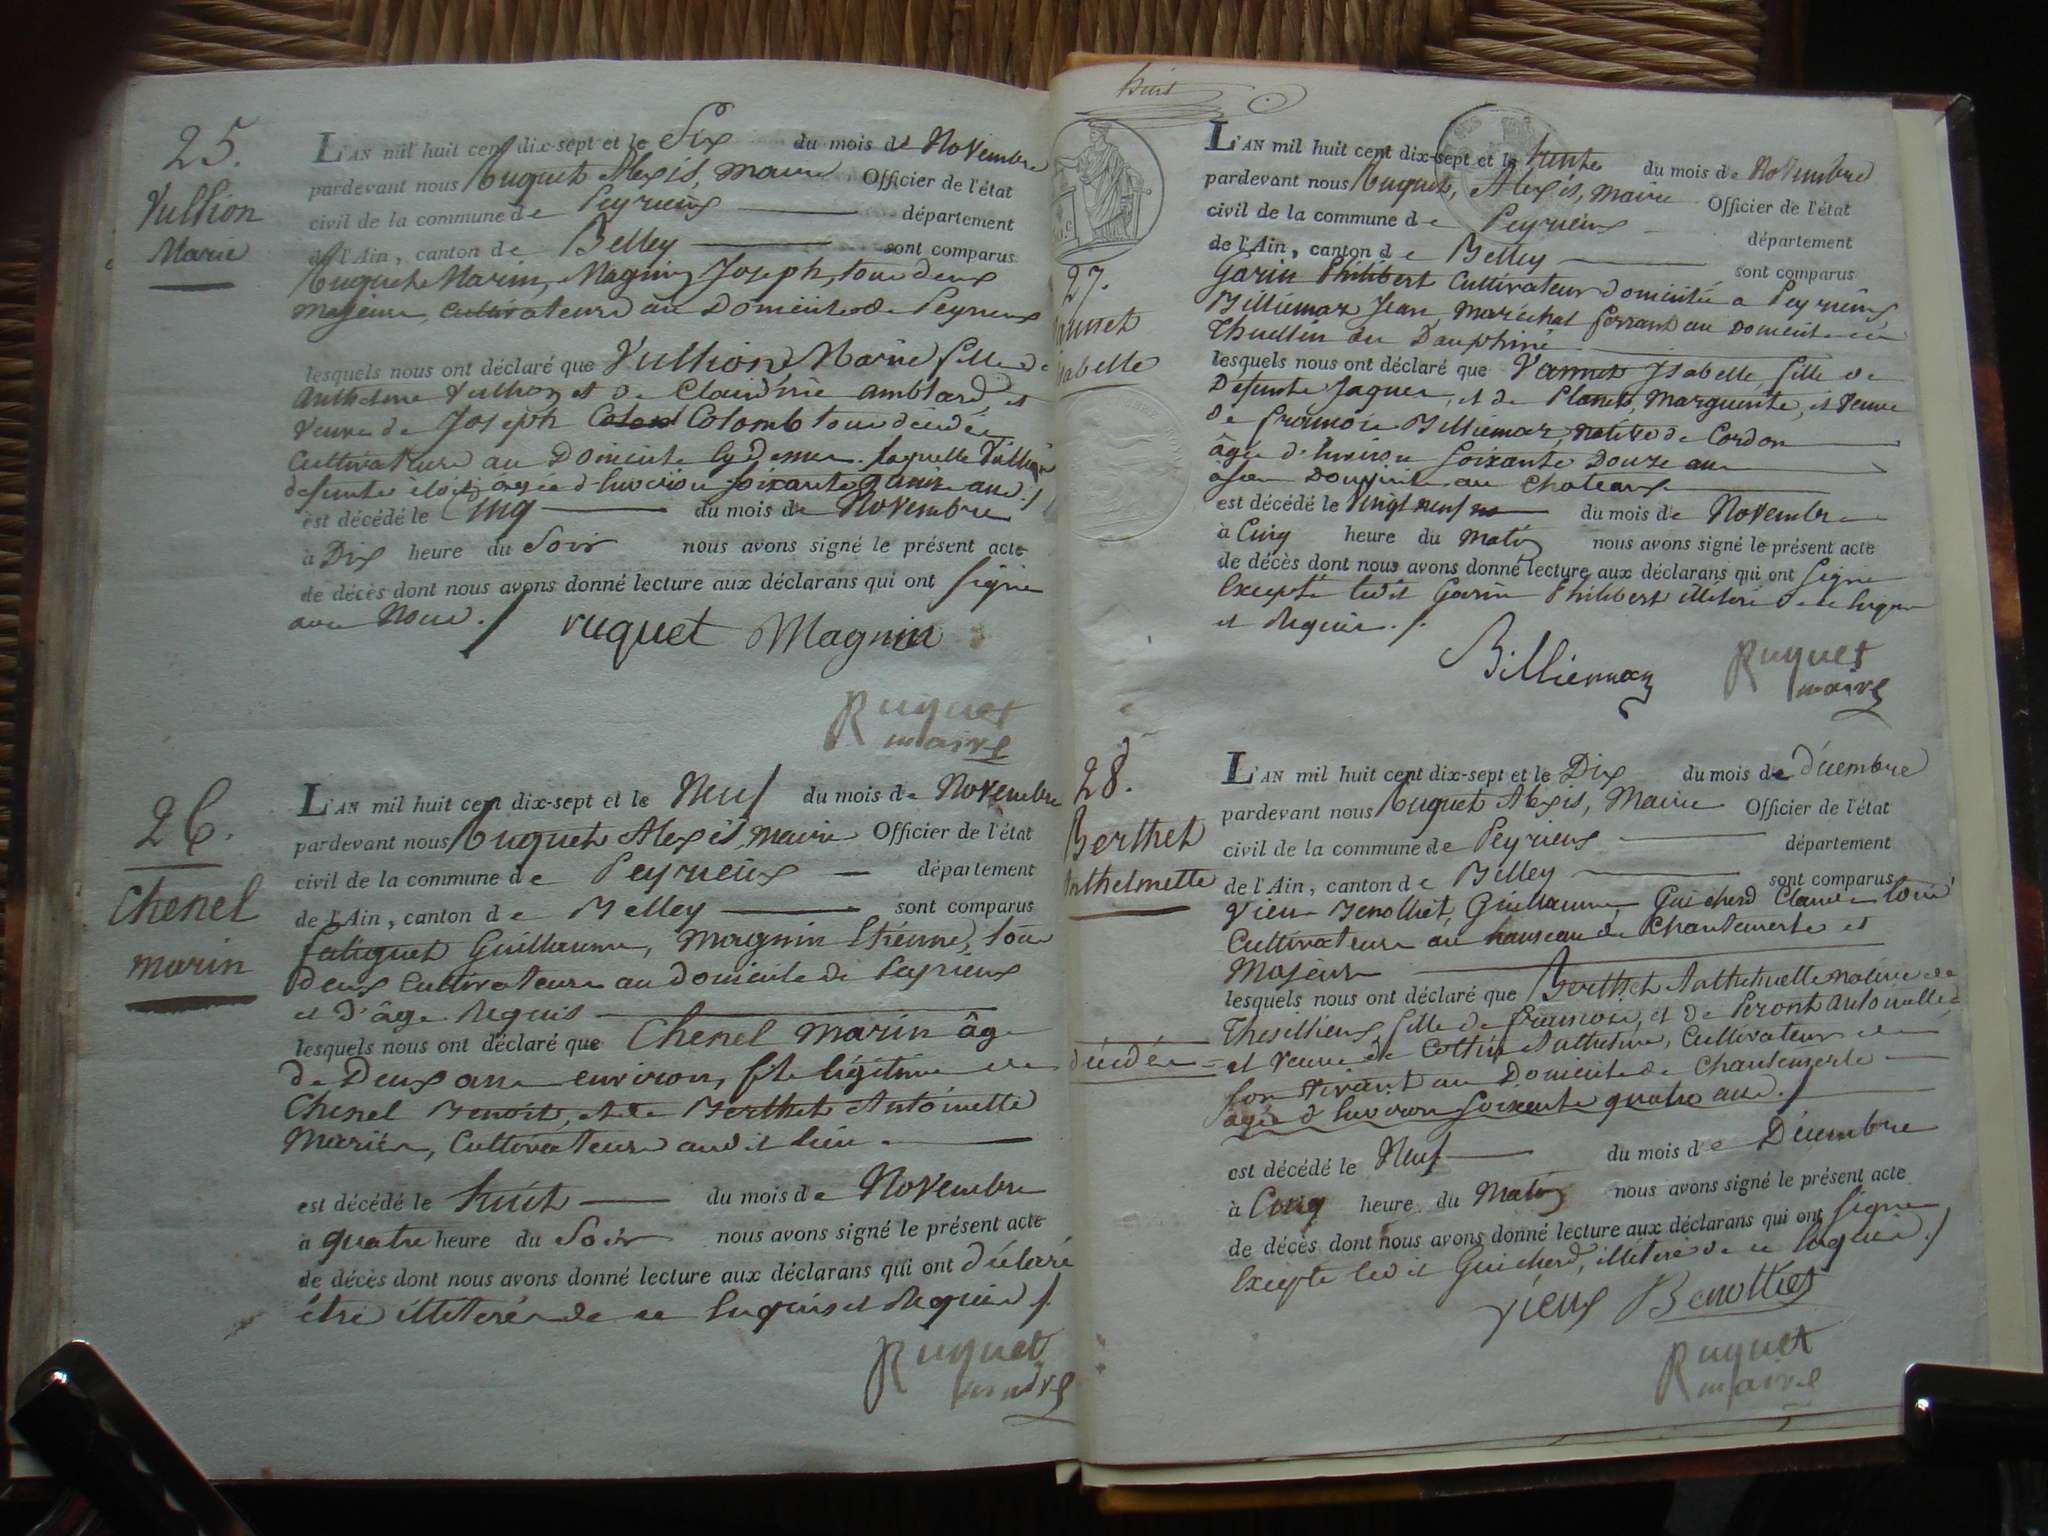 25.
Vullion
Marie
L'AN mil huit cent dix-sept et le Six du mois de Novembre
pardevant nous Ruquet Alexis, maire Officier de l'état
civil de la commune de Peyrieux département
de l'Ain, canton de Belley sont comparus
Ruquet Marin, Magnin Joseph, tous deux
Majeurs, Cultivateurs au Domicile de Peyrieux
lesquels nous ont déclaré que Vullion Marie fille de
Anthelme Vullion et de Claudine amblard, et
veuve de Joseph Colomb tous décédés
Cultivateurs au Domicile laquelle Vullion
defunte étoit agée d'environ soixante quinze ans ./
est décédé le Cinq du mois de Novembre
à Dix heure du Soir nous avons signé le présent acte
de décès dont nous avons donné lecture aux déclarans qui ont signé
avec Nous ./
ruquet Magnin
Ruquet
maire
26.
Chenel
marin
L'AN mil huit cent dix-sept et le Neuf du mois de Novembre
pardevant nous Ruquet Alexis, maire Officier de l'état
civil de la commune de Peyrieux département
de l'Ain, canton de Belley sont comparus
Guillaume, Magnin Etienne, tous
Deux Cultivateurs au domicile de Peyrieux
et d'âge Requis
lesquels nous ont déclaré que Chenel marin âgé
de Deux ans environ, fils légitime de
Chenel Benoit, et de Berthet Antoinette
Mariés, Cultivateurs audit lieu
est décédé le huit du mois de Novembre
à quatre heure du Soir nous avons signé le présent acte
de décès dont nous avons donné lecture aux déclarans qui ont déclaré
être illiterés de ce Enquis et Requis ./
Ruquet
maire
huit
27.
Vannet
Isabelle
L'AN mil huit cent dix-sept et le trente du mois de Novembre
pardevant nous Ruquet, Alexis, maire Officier de l'état
civil de la commune de Peyrieux département
de l'Ain, canton de Belley sont comparus
Garin Philibert Cultivateur domicilié a Peyrieux
Billiemaz Jean, Maréchal ferrant au Domicile de
Thuellin en Dauphiné
lesquels nous ont déclaré que Vannet Isabelle, fille de
Defunts Jaques, et de Planet, Marguerite, et Veuve
de françois Billiemaz, native de Cordon
âgée d'environ soixante Douze ans
a son Domicile au Chateau
est décédé le vingt neuf du mois de Novembre
à Cinq heure du Matin nous avons signé le présent acte
de décès dont nous avons donné lecture aux déclarans qui ont signé
Excepté ledit Garin Philibert illiteré de ce Enquis
et Requis ./.
Billiemaz
Ruquet
maire
28.
Berthet
Anthelmette
L'AN mil huit cent dix-sept et le Dix du mois de décembre
pardevant nous Ruquet Alexis, Maire Officier de l'état
civil de la commune de Peyrieux département
de l'Ain, canton de Belley sont comparus
Vieux Benolliet, Guillaume, Guicherd Claude tous
Cultivateurs au hameau de Chantemerle et
Majeurs
lesquels nous ont déclaré que Berthet Anthelmette native de
fille de françois, et de Peront Antoinette
décédés = et veuve de Cottin Anthelme, Cultivateur de
son vivant au Domicile de Chantemerle
agée d'environ soixante quatre ans ./
est décédé le Neuf du mois de Décembre
à Cinq heure du Matin nous avons signé le présent acte
de décès dont nous avons donné lecture aux déclarans qui ont signé
Excepté ledit Guicherd, illiteré de ce Enquis ./
vieux Benolliet
Ruquet
maire